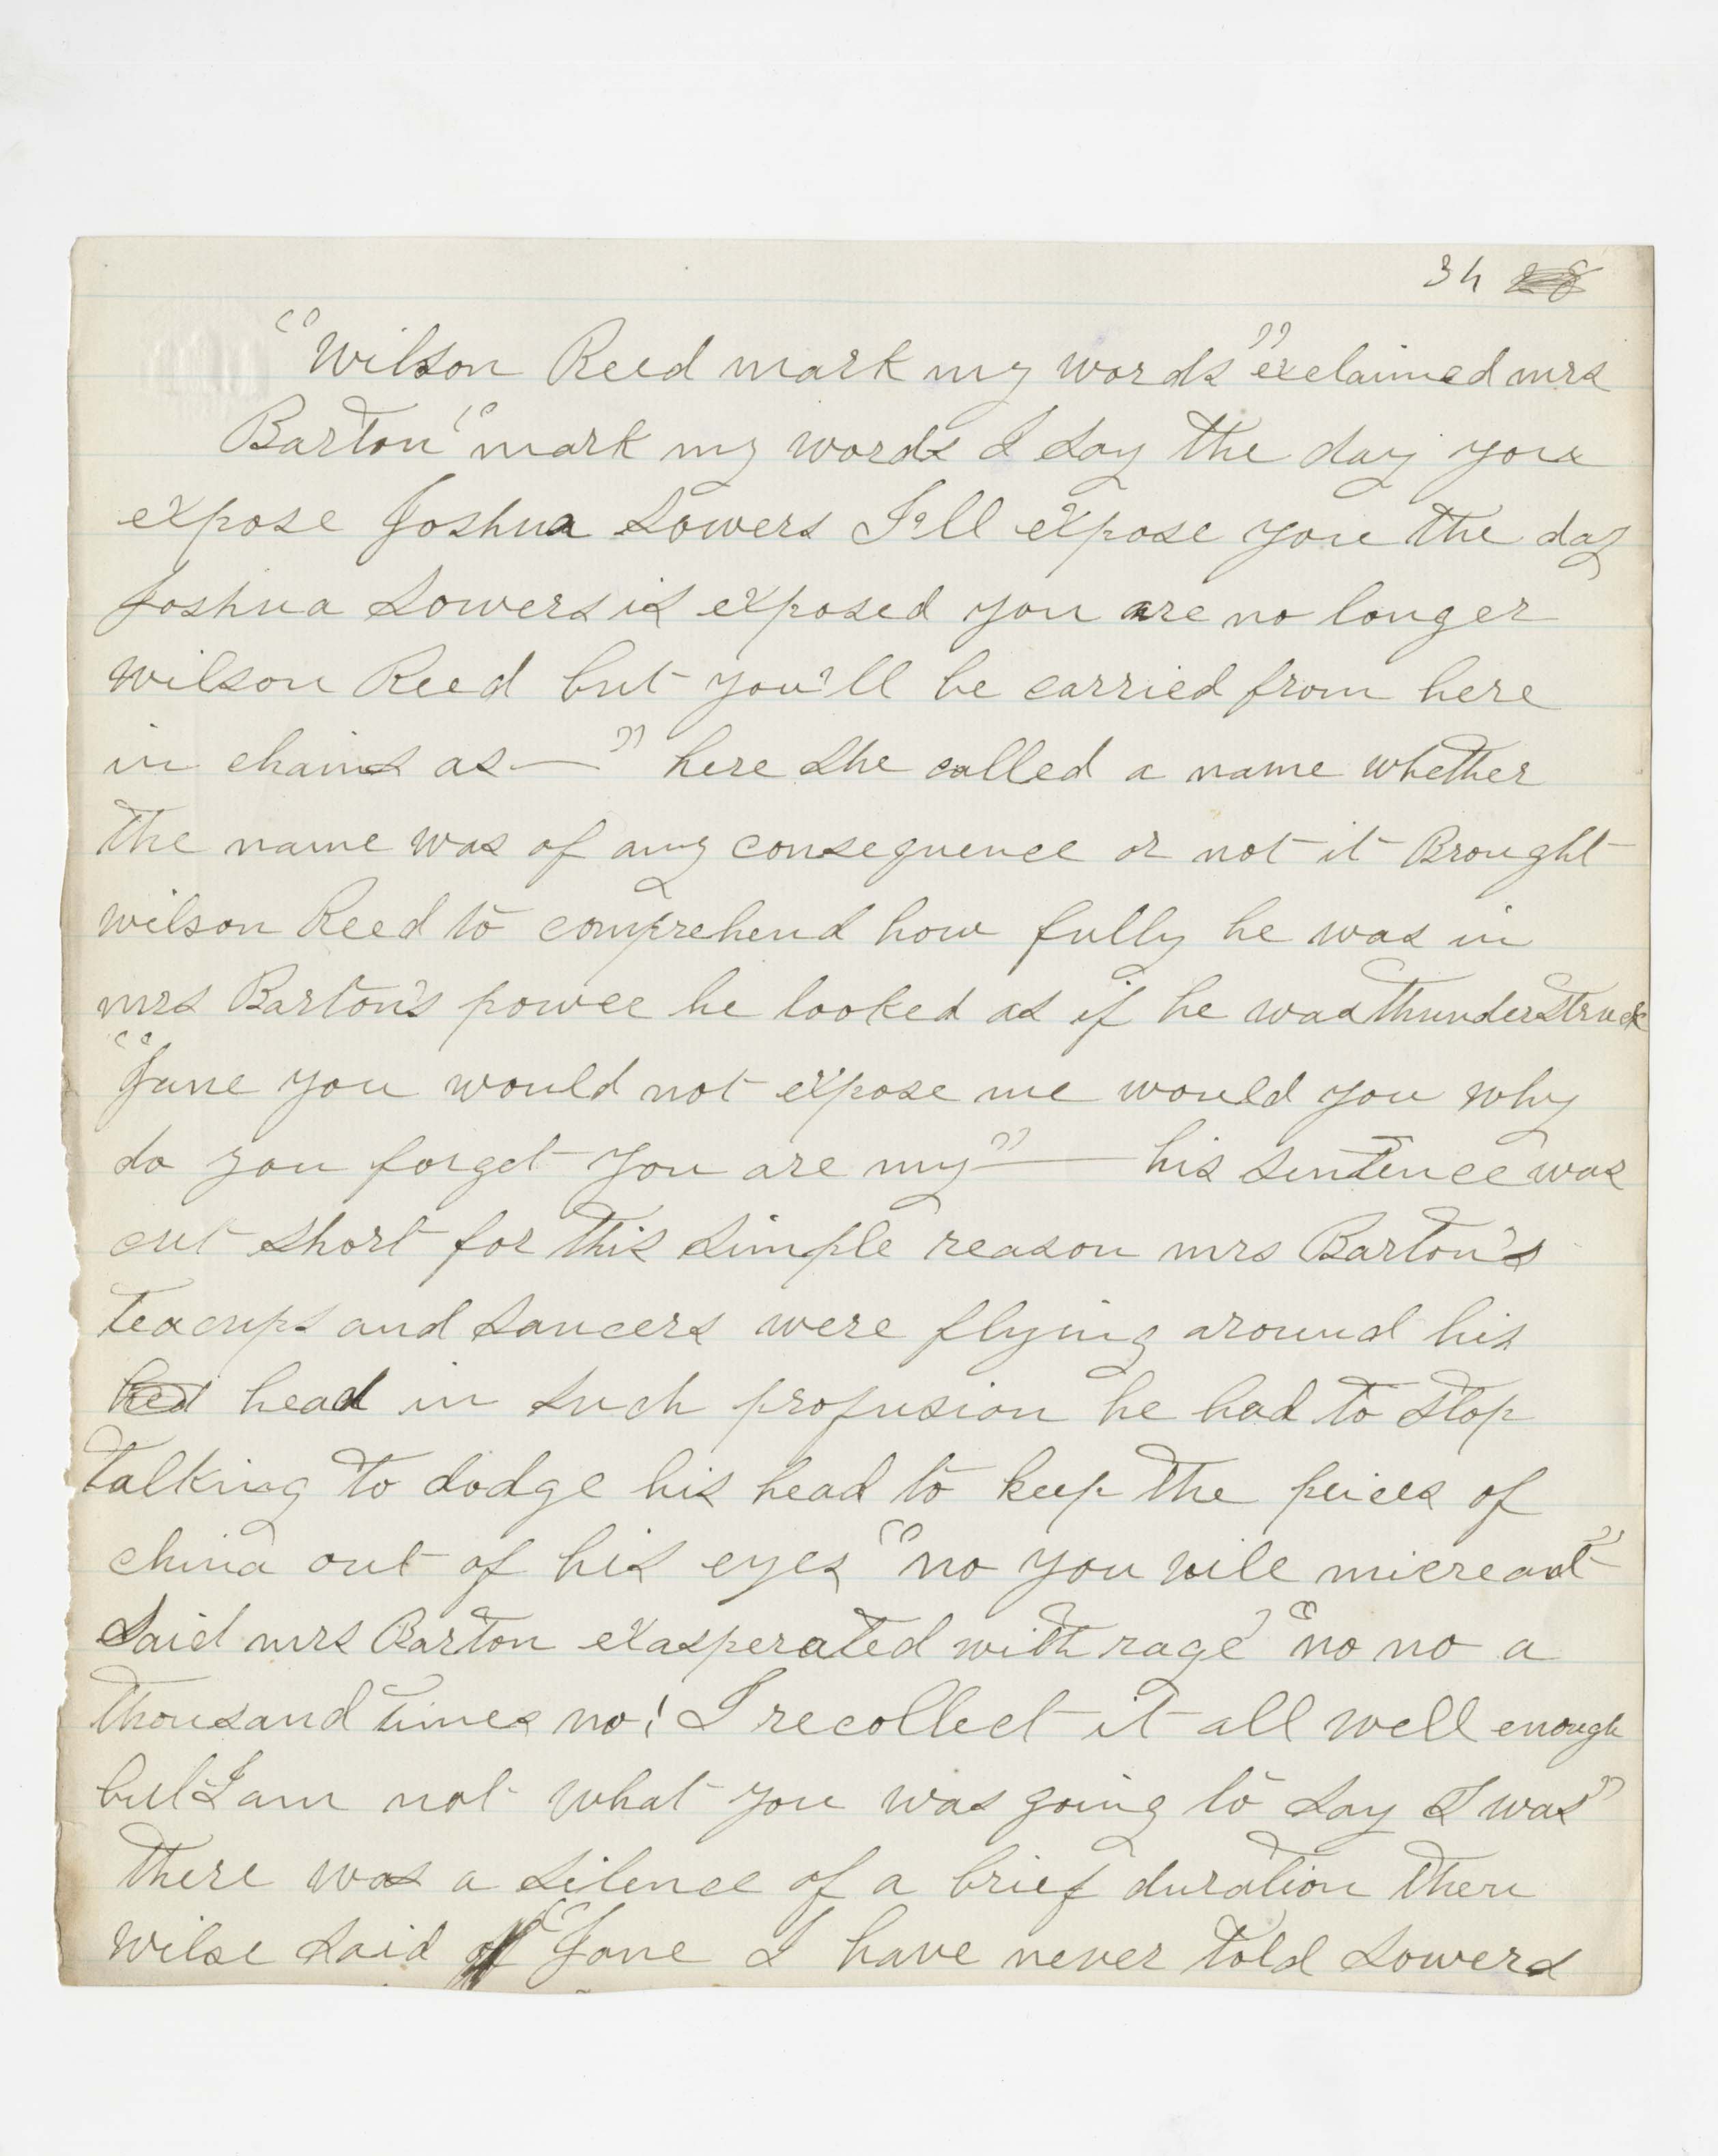 34
"Wilson Reed mark my words" exclaimed mrs
Barton "mark my words I say the day you
expose Joshua Sowers I'll expose you the day
Joshua Sowers is exposed you are no longer
Wilson Reed but you'll be carried from here
in chains as—" here she called a name whether
the name was of any consequence or not it Brought
wilson Reed to comprehend how fully he was in
mrs Barton's power he looked as if he was thunderstruck
"Jane you would not expose me would you why
do you forget you are my"— his sentence was
cut short for this simple reason mrs Barton's
teacups and saucers were flying around his
head in such profusion he had to stop
talking to dodge his head to keep the peices of
china out of his eyes "no you vile micreant"
Said mrs Barton exasperated with rage "no no a
thousand times no! I recollect it all well enough
but I am not what you was going to say I was"
there was a silence of a brief duration then
Wilse said "Jane I have never told Sowers